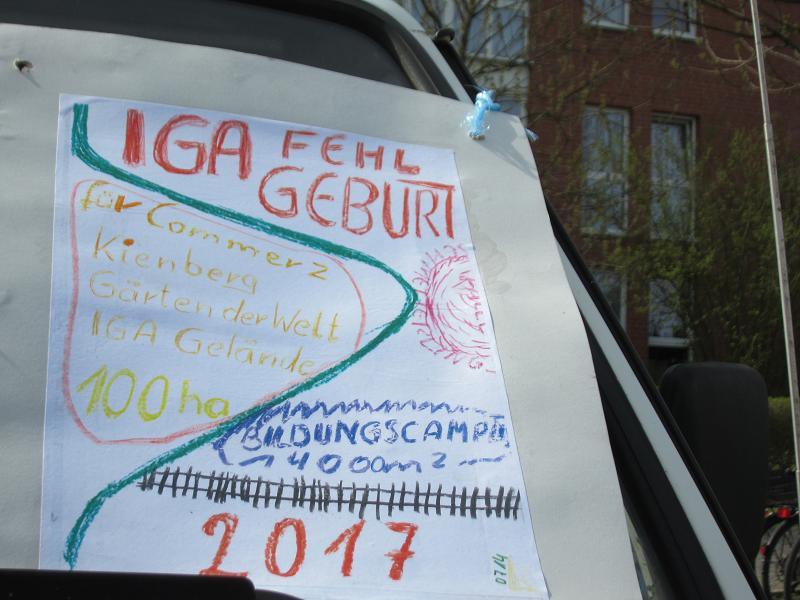 IGA FEHL
GEBURT
für Commerz
Kienberg
Gärten der Welt
IGA Gelände
100 ha
BILDUNGSCAMPUS
4000m2
2017
07/14